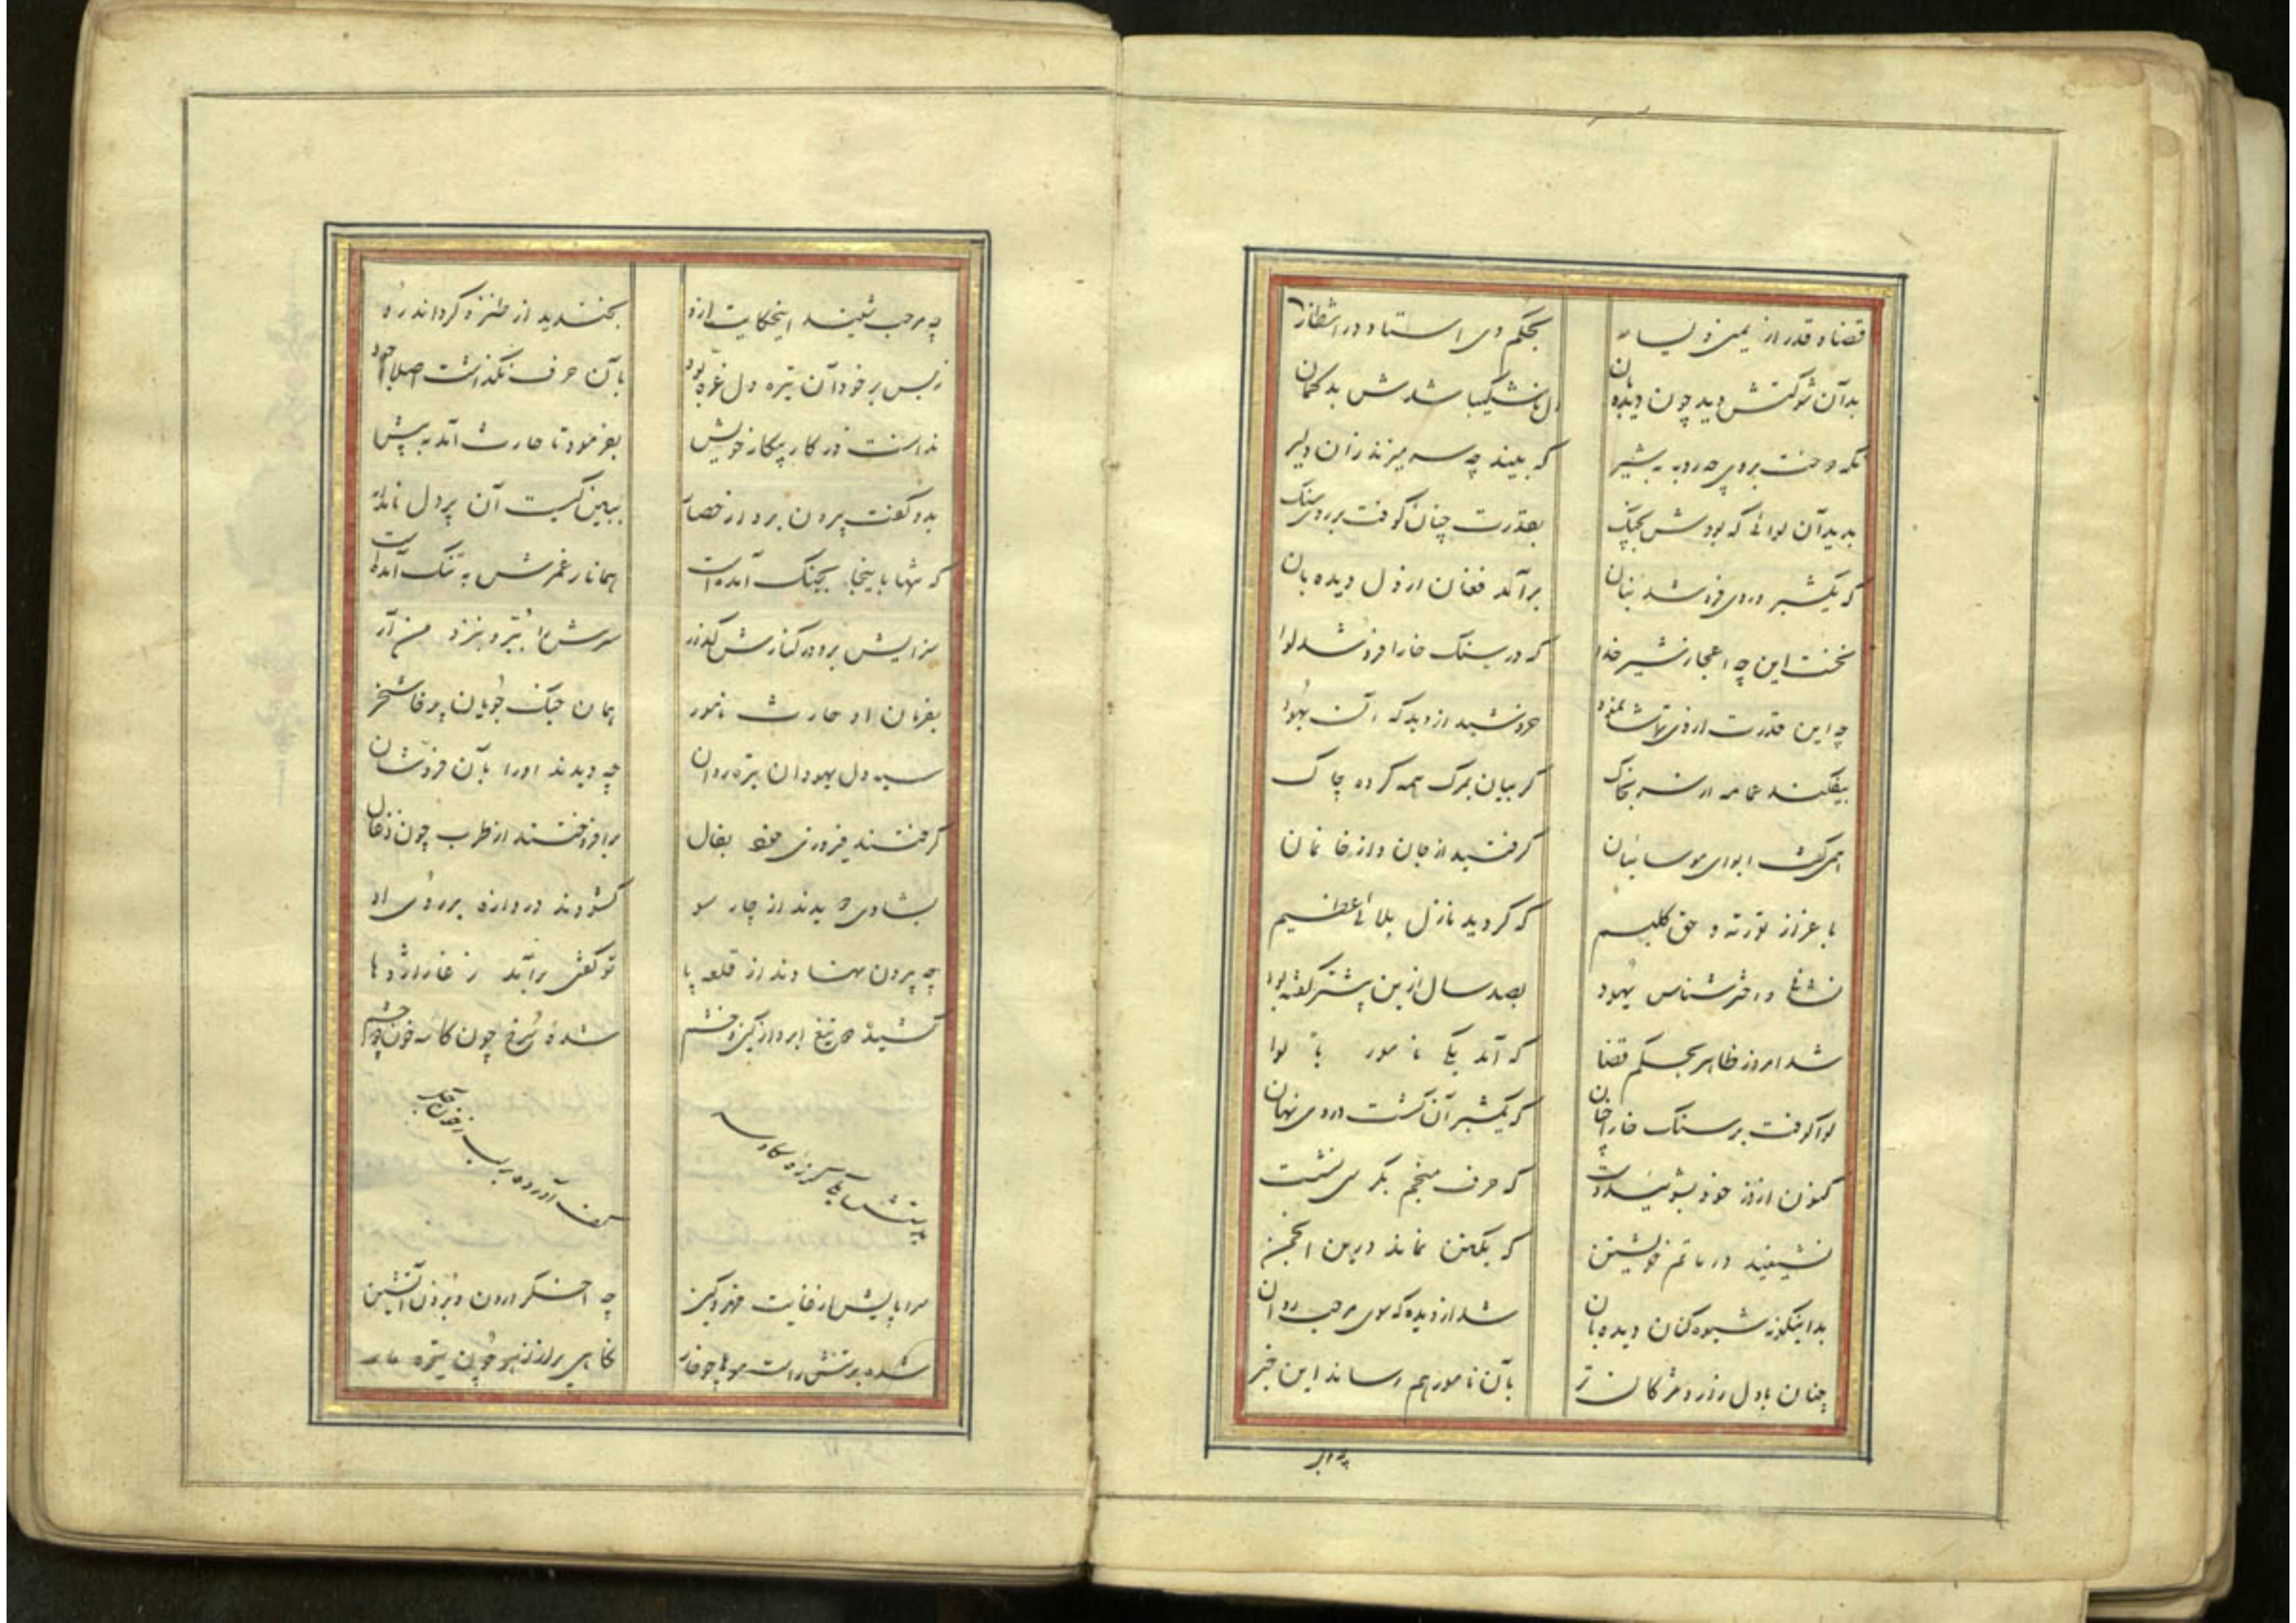 قضا و قدر از یمین و یسار بحکم وی استاده در انتظار
بدآن شوکتش دید چون دیده‌بان دل ناشکیبا شدش بدگمان
که بیند چه سر میزند زان دلیر
بدید آن لوائی که بودش بچنگ بقدرت چنان کوفت بر روی سنگ
که یکشبر در وی فرو شد بنان برآمد فغان از دل دیده بان
نخست این چه اعجاز شیر خدا که در سنگ خارا فرو شد لوا
چه این قدرت از وی تماشا نمود خروشید از دیدکه آن یهود
بیفکند عمامه از سر بخاک گریبان بمرگ همه کرده چاک
همی گفت ایوای موسائیان گرفتید از جان و از خانمان
باعزاز توریة و حق کلیم که گردید نازل بلائی عظیم
اختر شناس یهود بصد سال ازین پیشتر گفته بود
شد امروز ظاهر بحکم قضا که آید یکی نامور با لوا
لوا کوفت بر سنگ خارا چنان که یکشبر آن گشت در وی نهان
کنون از خود بشوئید دست که حرف منجم بکرسی نشست
نشینید در ماتم خویشتن که یکتن نماند درین انجمن
بداینگونه شیون کنان دیده‌بان شد از دیده که سوی مرحب روان
چنان با دل زار و مژگان تر بآن نامور هم رساند این خبر
چه مرحب شنید اینحکایت ازو بخندید از طنز و گرداند رو
ز بس بر خود آن تیره دل غره بود بآن حرف نگذاشت اصلا وجود
ندانست در کار پیکار خویش بفرمود تا حارث آمد به پیش
بدو گفت بیرون برو از حصار ببین کیست آن پردل نامدار
که تنها باینجا بجنگ آمده است همانا ز عمرش به تنگ آمده است
سزایش برو در کنارش گذار سرش را ببر و بنزد من آر
بفرمان او حارث نامور همان جنگ جویان پرخاشخر
سیه دل یهودان تیره روان چه دیدند او را بآن فر و شان
گرفتند فیروزی خود بفال برافروختند از طرب چون زغال
بشادی دویدند از چار سو گشودند دروازه بر روی او
چه بیرون نهادند از قلعه پا تو گفتی برآمد ز غار اژدها
کشیده تیغ ابرو از کین و خشم شده سرخ چون کاسه خون چشم
کف آورده بر لب
سراپایش از غایت قهر و کین چه اخگر درون و برون آتشین
شده بر تنش راست موها چو خار نگاهی پر از زهر چون تیره مار